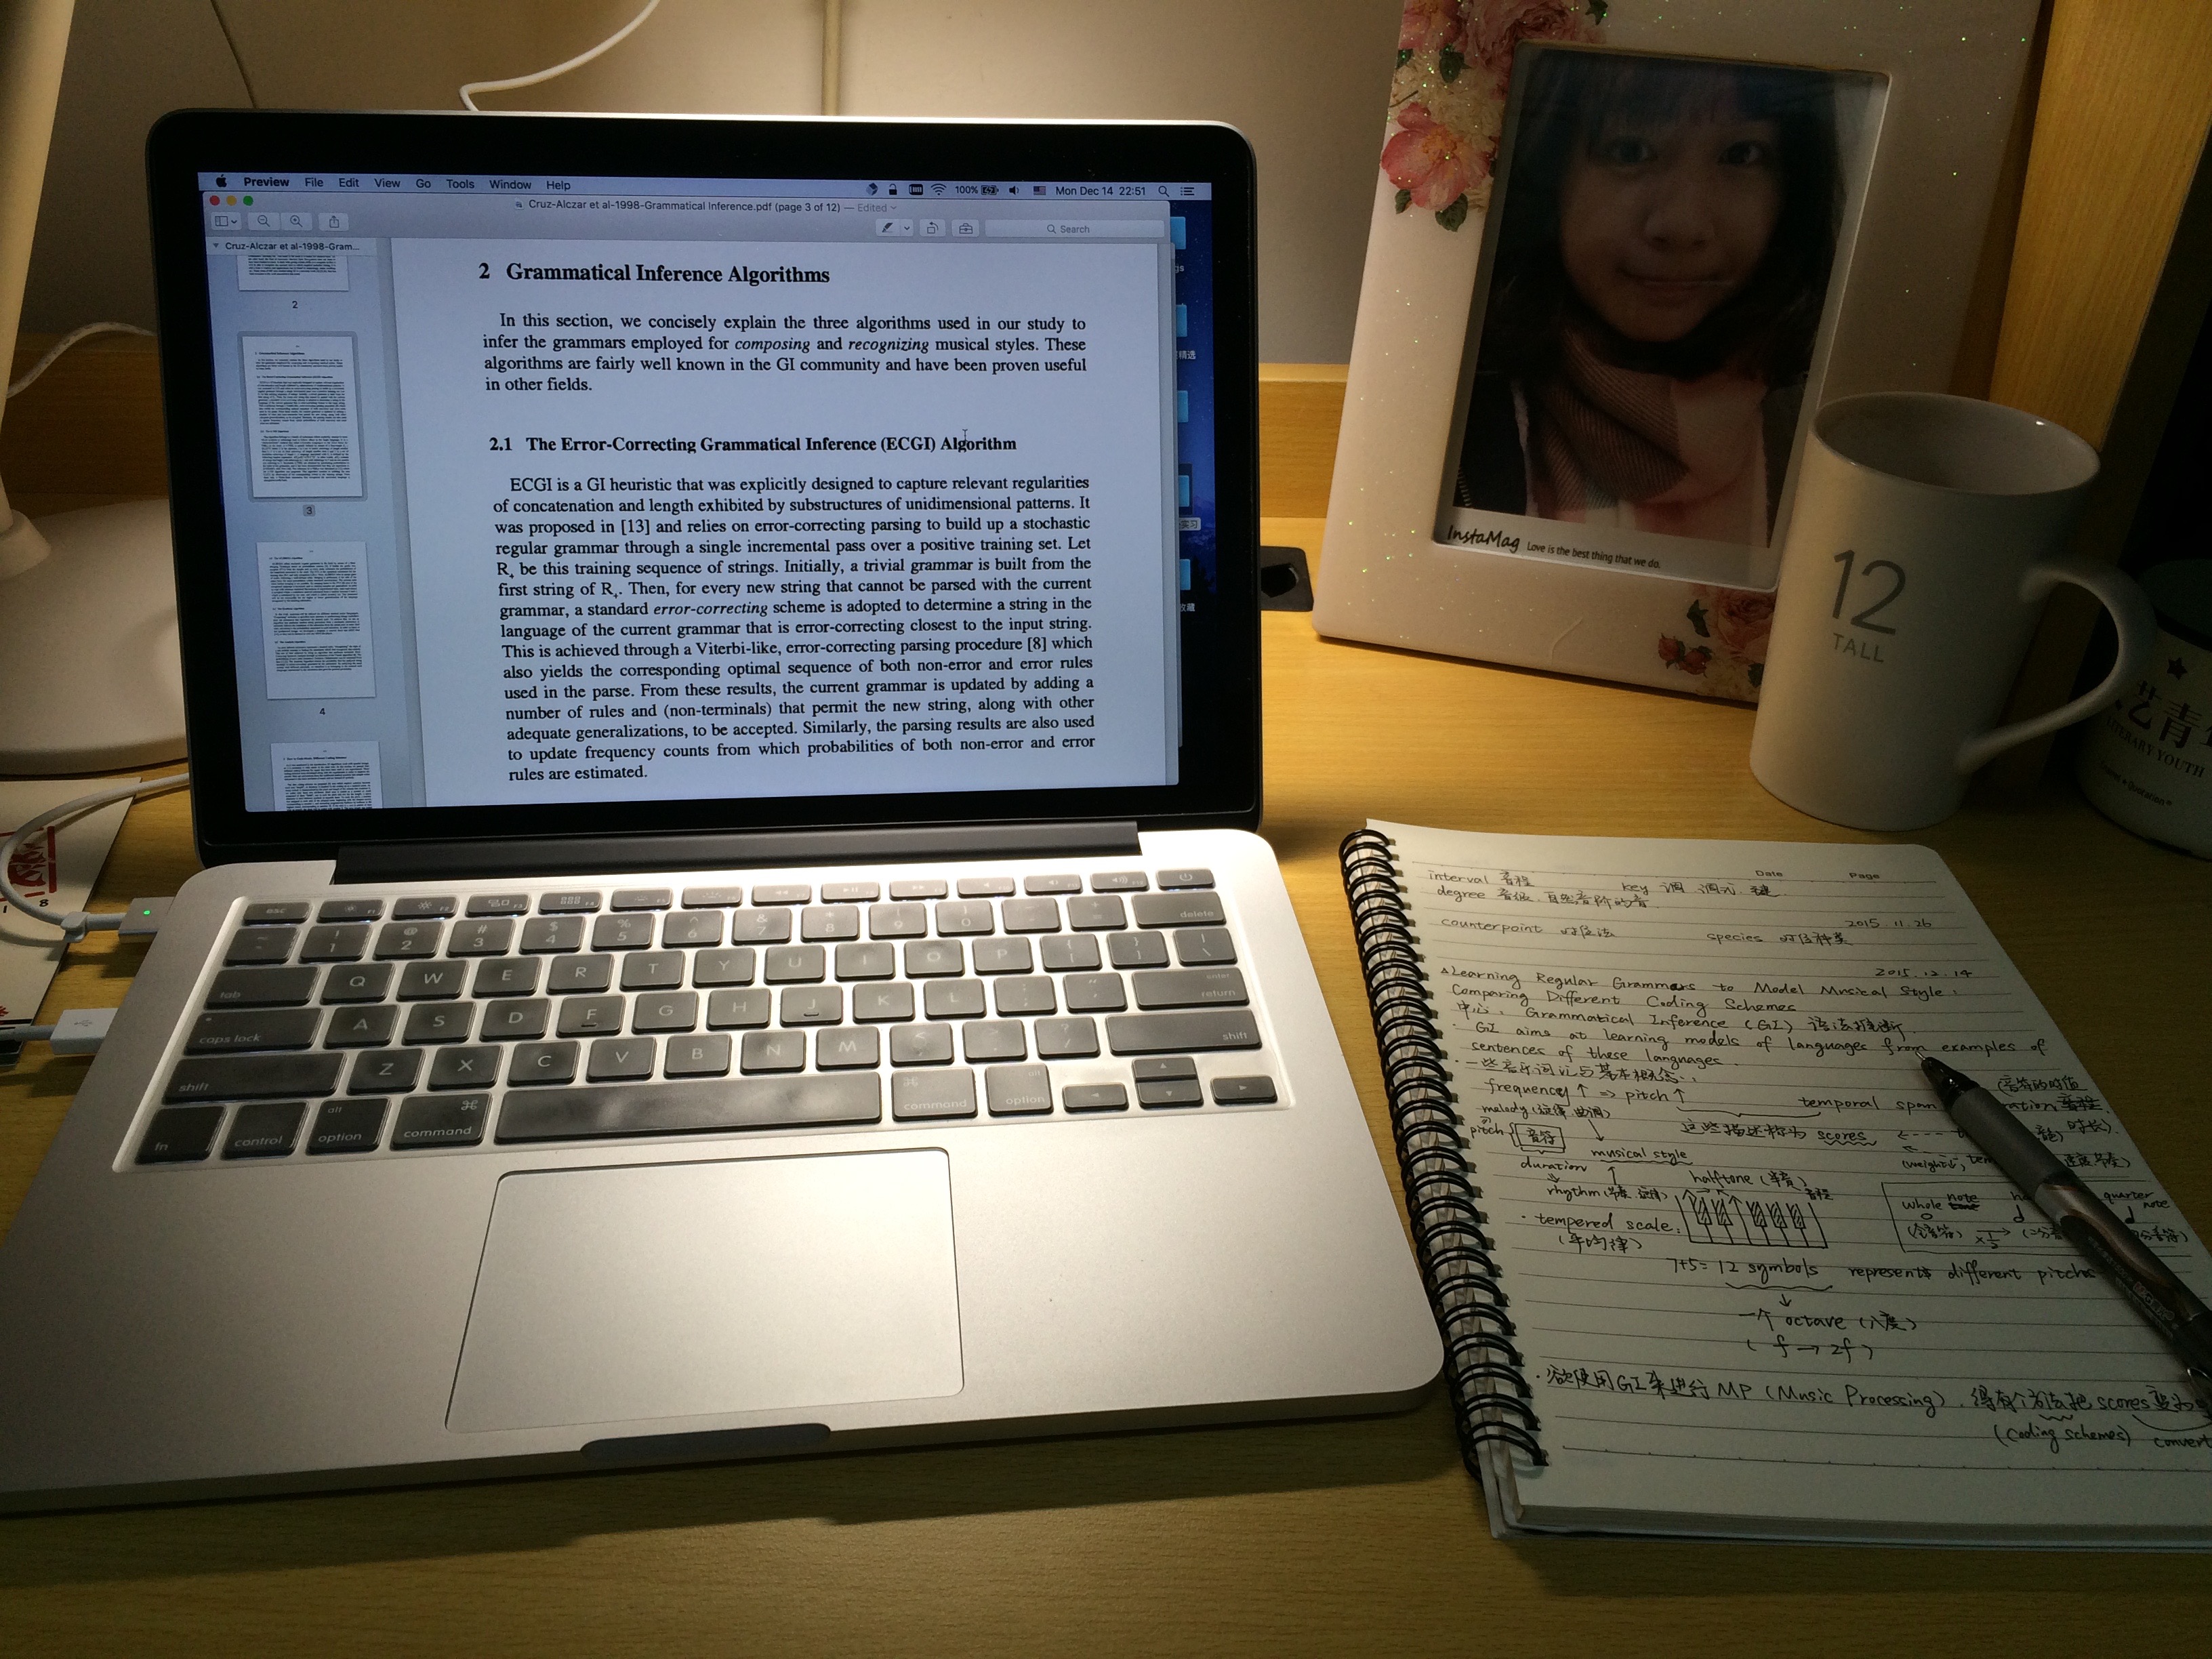 Preview File Edit View Go Tools Window Help
100% Mon Dec 14 22:51
Cruz-Alczar et al-1998-Grammatical Inference.pdf (page 3 of 12) — Edited
Search
Cruz-Alczar et al-1998-Gram...
2
3
4
2 Grammatical Inference Algorithms
In this section, we concisely explain the three algorithms used in our study to
infer the grammars employed for composing and recognizing musical styles. These
algorithms are fairly well known in the GI community and have been proven useful
in other fields.
2.1 The Error-Correcting Grammatical Inference (ECGI) Algorithm
ECGI is a GI heuristic that was explicitly designed to capture relevant regularities
of concatenation and length exhibited by substructures of unidimensional patterns. It
was proposed in [13] and relies on error-correcting parsing to build up a stochastic
regular grammar through a single incremental pass over a positive training set. Let
R+ be this training sequence of strings. Initially, a trivial grammar is built from the
first string of R+. Then, for every new string that cannot be parsed with the current
grammar, a standard error-correcting scheme is adopted to determine a string in the
language of the current grammar that is error-correcting closest to the input string.
This is achieved through a Viterbi-like, error-correcting parsing procedure [8] which
also yields the corresponding optimal sequence of both non-error and error rules
used in the parse. From these results, the current grammar is updated by adding a
number of rules and (non-terminals) that permit the new string, along with other
adequate generalizations, to be accepted. Similarly, the parsing results are also used
to update frequency counts from which probabilities of both non-error and error
rules are estimated.
精选
实习
收藏
InstaMag Love is the best thing that we do.
12
TALL
艺青
TERARY YOUTH
esc
1 2 3 4 5 6 7 8 9 0 delete
tab Q W E R T Y U I O P enter return
caps lock A S D F G H J K L
shift Z X C V B N M shift
fn control alt option command command alt option
1 8
Date Page
interval 音程 key 调 调式 键
degree 音级 自然音阶的音
2015 11 26
counterpoint 对位法 species 对位种类
2015.12.14
△Learning Regular Grammars to Model Musical Style:
Comparing Different Coding Schemes
中心: Grammatical Inference (GI) 语法推断
· GI aims at learning models of languages from examples of
sentences of these languages.
· 一些音乐词汇与基本概念:
frequency↑ => pitch↑ temporal span (音符的时值
melody (旋律, 曲调) 时长)
pitch 音符 这些描述称为 scores
duration musical style
rhythm (节奏
halftone (半音) 音程
whole note quarter note
(全音符)
· tempered scale:
(平均律)
7+5=12 symbols represents different pitches
一个 octave (八度)
(f → 2f)
· 欲使用GI来进行 MP (Music Processing), 得有个方法把 scores 变为
(Coding schemes) convert